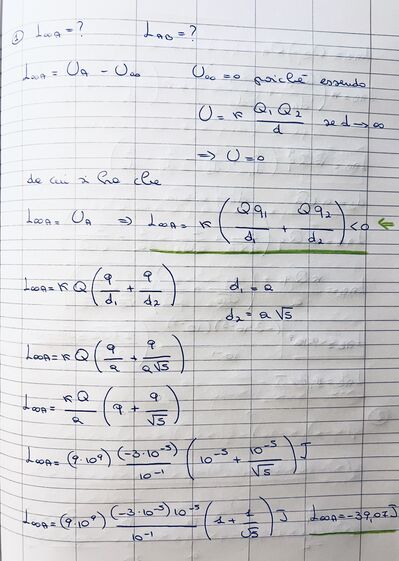 ① L∞A = ? L_AB = ?
L∞A = U_A - U∞ U∞ = 0 poiché essendo
U = K Q₁ Q₂ / d se d → ∞
⇒ U = 0
da cui si ha che
L∞A = U_A ⇒ L∞A = K ( Qq₁ / d₁ + Qq₂ / d₂ ) < 0 ⇐
L∞A = K Q ( q / d₁ + q / d₂ ) d₁ = a
d₂ = a √5
L∞A = K Q ( q / a + q / a√5 )
L∞A = K Q / a ( q + q / √5 )
L∞A = (9·10⁹) (-3·10⁻⁵) / 10⁻¹ ( 10⁻⁵ + 10⁻⁵ / √5 ) J
L∞A = (9·10⁹) (-3·10⁻⁵) 10⁻⁵ / 10⁻¹ ( 1 + 1 / √5 ) J L∞A = -39,07 J